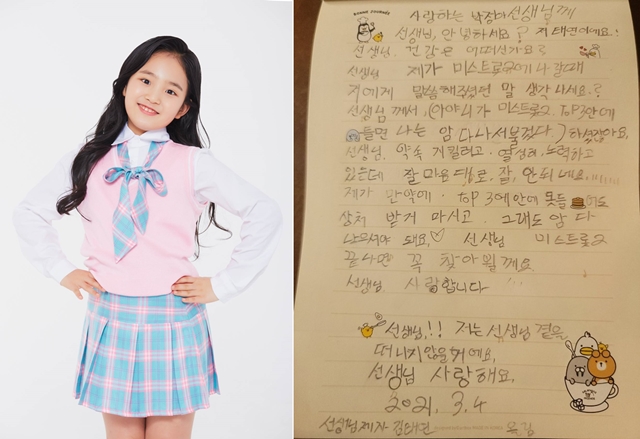 사랑하는 박정아 선생님께
선생님, 안녕하세요? 저 태연이에요!
선생님, 건강은 어떠신가요?
선생님 제가 미스트롯2에 나갈때
저에게 말씀해주셨던 말 생각 나세요?
선생님께서, (아야 니가 미스트롯2. Top3안에
들면 나는 암 다 나서불겄다) 하셨잖아요.
선생님, 약속 지킬려고. 열심히, 노력하고
있는데 잘 마음대로. 잘, 안되네요.
제가 만약에. top 3에 안에 못들어도
상처 받거 마시고. 그래도 암 다
나으셔야 돼요,♡ 선생님 미스트롯2
끝나면 꼭 찾아뵐께요.
선생님. 사랑합니다
선생님,!! 저는 선생님 곁을
떠나지않을거에요,
선생님 사랑해요,
2021. 3. 4
선생님제자 김태연 올림